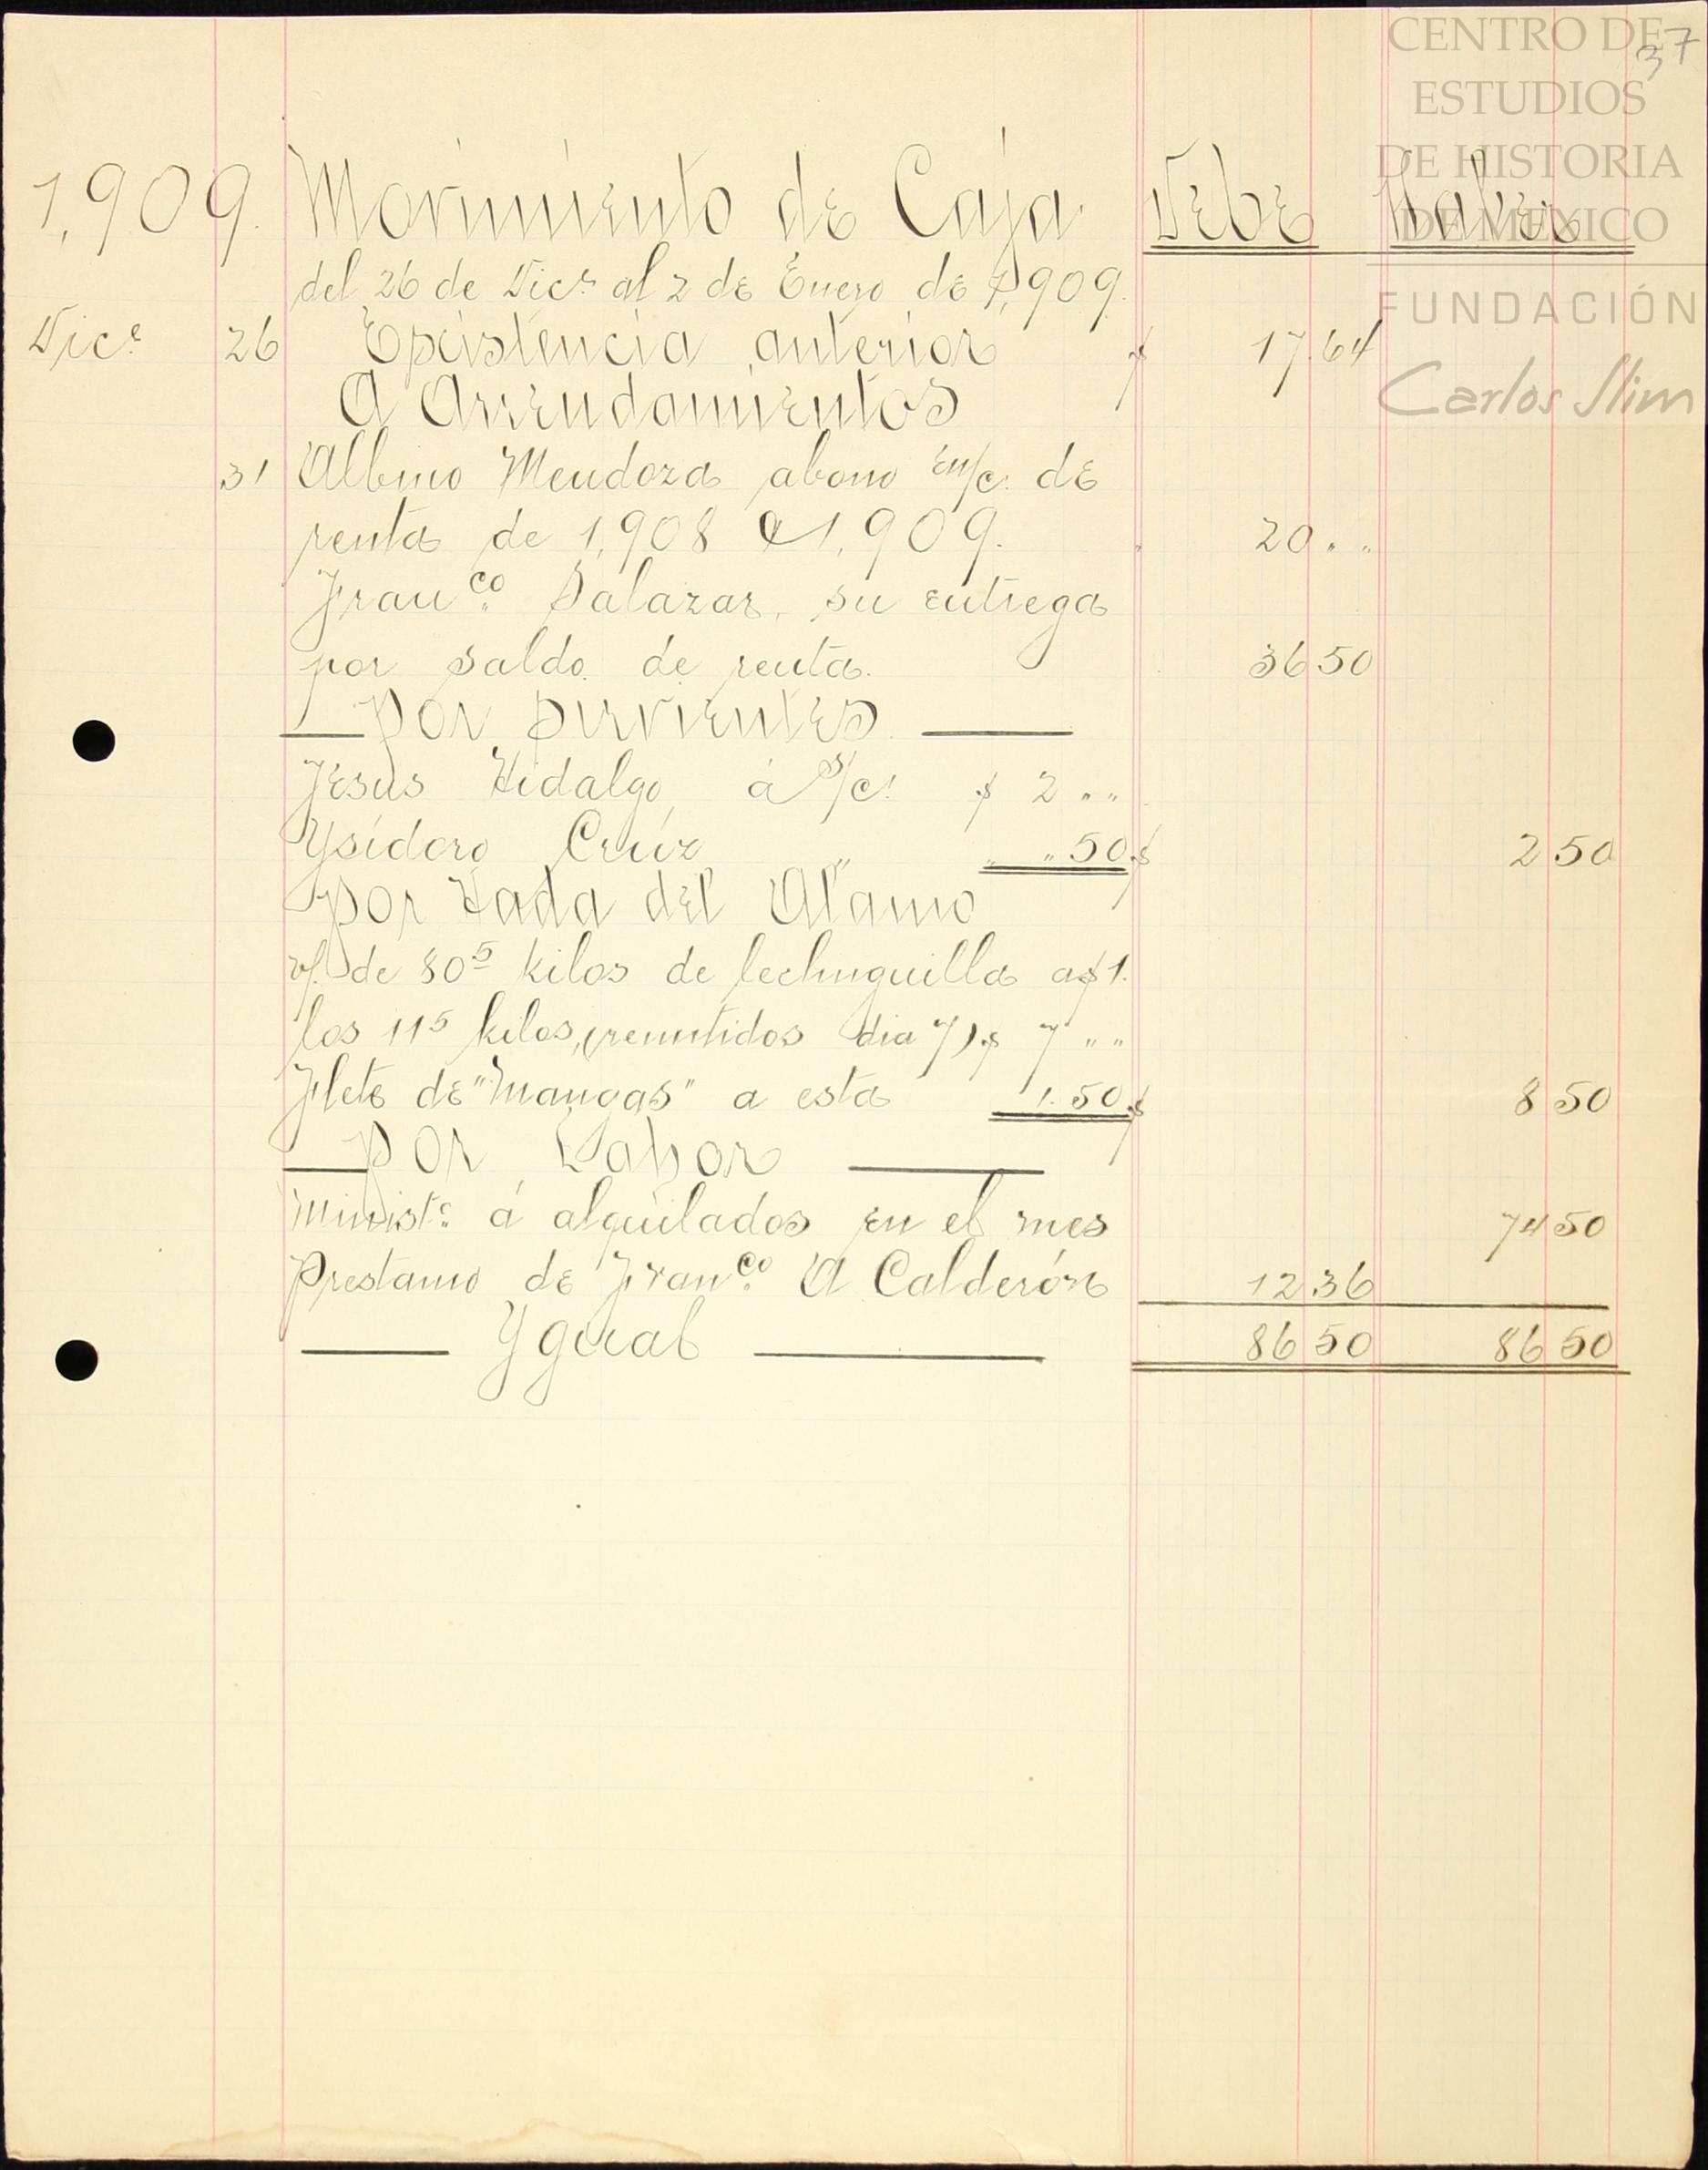 CENTRO DE
ESTUDIOS
DE HISTORIA
DE MEXICO
FUNDACIÓN
Carlos Slim
37
1,909. Movimiento de Caja Debe Haber
del 26 de Dice al 2 de Enero de 1,909.
Dice 26 Existencia anterior $ 17.64
A Arrendamientos
31 Albino Mendoza abono en/c. de
renta de 1,908 a 1,909. 20 " "
Franco. Salazar, su entrega
por saldo de renta. 36 50
Por sirvientes
Jesus Hidalgo, á s/c. $ 2 " "
Ysidoro Cruz " " " 50 $ 2 50
Por Hada del Alamo
v/. de 805 kilos de lechuguilla a $ 1.
los 115 kilos, (remitidos dia 7) $ 7 " "
Flete de "Mangas" a esta 1.50 $ 8 50
Por Labor
Ministe á alquilados en el mes 74 50
Prestamo de Franco. A Calderón 12 36
Ygual 86 50 86 50